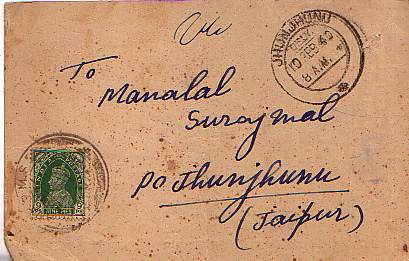 To
Manalal
Surajmal
PO Jhunjhunu
(Jaipur)
JHUNJHUNU
10 FEB 40
NINE PIES